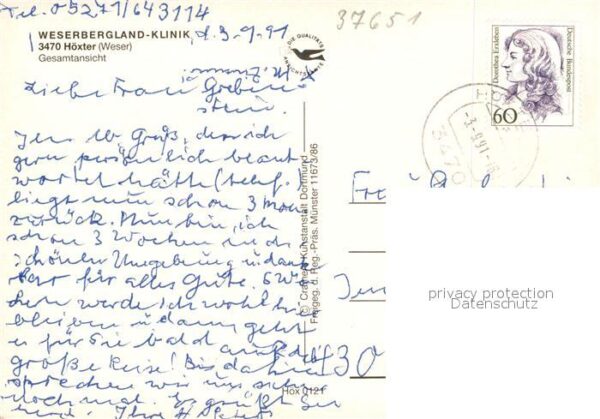 Tel. 05271/643114
WESERBERGLAND-KLINIK
3470 Höxter (Weser)
Gesamtansicht
d. 3-9-91
37651
DIE QUALITÄTS
Dorothea Erxleben
Deutsche Bundespost
60
Liebe Frau
stein.
Ihr lb. Gruß, den ich
gern persönlich beant
wortet hätte (telef.)
liegt nun schon 3 Mon
zurück. Nun bin ich
schon 3 Wochen in d.
schönen Umgebung u. dank
bar für alles Gute. 6 Wo
chen werde ich wohl hier
bleiben u. dann geht
es für Sie bald auf die
große Reise! Bis dahin
sprechen wir uns schon
noch mal. Es grüßt Sie
Ihre H.
© Cramers Kunstanstalt Dortmund
Freigeg. d. Reg.-Präs. Münster 11673/86
Hox 0121
3470
-3.-9.91-
30
privacy protection
Datenschutz